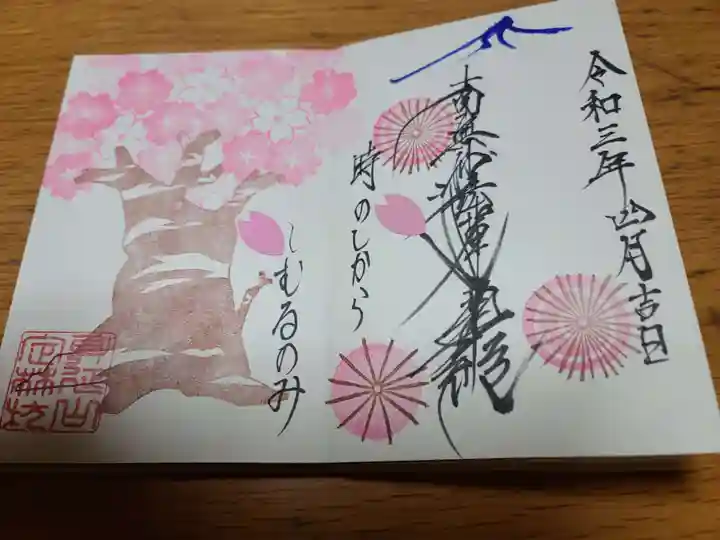 令和三年 四月吉日
南無妙法蓮華経
時のしから
しむるのみ